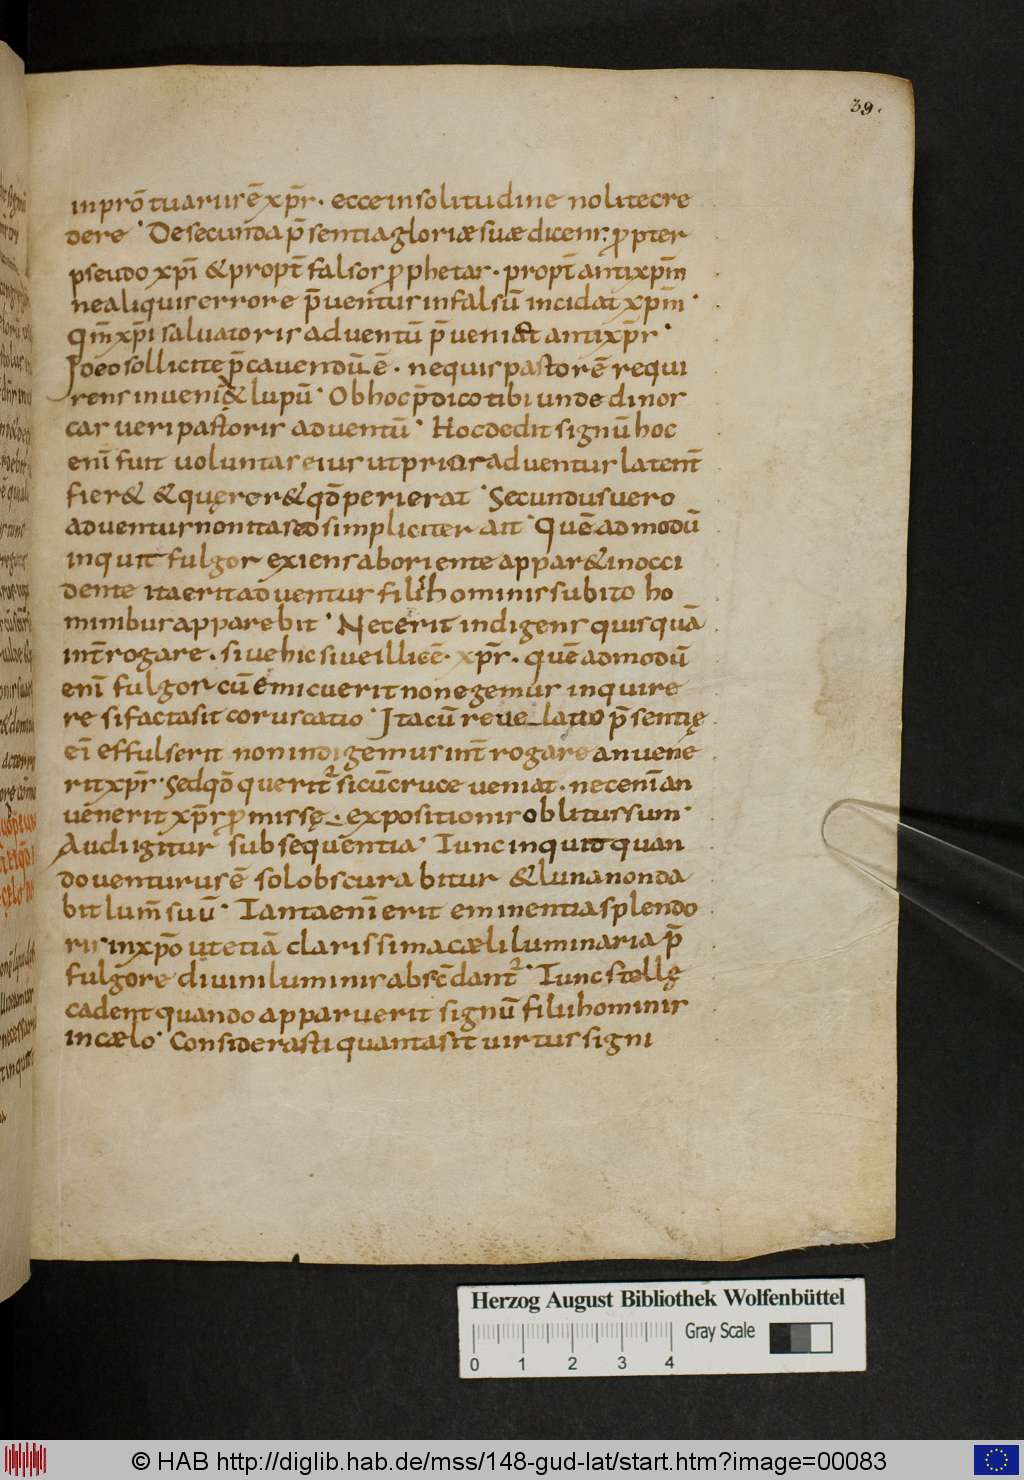 39.
inprō tuarius ē xp̄s · ecce in solitudine nolite cre
dere · De secunda p̄sentia gloriæ suæ dicens; propter
pseudo xp̄i & propt̄ falsos prophetas · propt̄ antixp̄m
ne aliquis errore p̄ventus in falsū incidat xp̄m ·
Qm̄ xp̄i salvatoris adventū p̄veniet antixp̄s ·
Ideo sollicite p̄cavendū ē · nequis pastorē requi
rens inveni& lupū · Ob hoc p̄dico tibi unde dinos
cas veri pastoris adventū · Hoc dedit signū hoc
enī fuit voluntas eius ut prior adventus latent̄
fier& & quęrer& qd̄ perierat · Secundus vero
adventus non ita sed simpliciter ait · Quē admodū
inquit fulgor exiens ab oriente appar& in occi
dente ita erit adventus filii hominis subito ho
minibus apparebit · Nec erit indigens quisquā
int̄rogare · sive hic sive illic ē · xp̄s · quē admodū
enī fulgor cū emicuerit non egemus inquire
re si facta sit coruscatio · Ita cū revelatio p̄sentię
eī effulserit non indigemus int̄rogare an vene
rit xp̄s · Sed qd̄ querit̄ si cū cruce veniat · nec enī an
venerit xp̄s promissę · expositionis oblitus sum ·
Audi igitur subsequentia · Tunc inquid quan
do venturus ē sol obscurabitur & luna non da
bit lum̄ suū · Tanta enī erit eminentia splendo
ris in xp̄o ut etiā clarissima cæli luminaria p̄
fulgore divini luminis absc̄dant̄ · Tunc stellę
cadent quando apparuerit signū filii hominis
in cælo · Considerasti quanta sit virtus signi
Herzog August Bibliothek Wolfenbüttel
Gray Scale
0 1 2 3 4
© HAB http://diglib.hab.de/mss/148-gud-lat/start.htm?image=00083